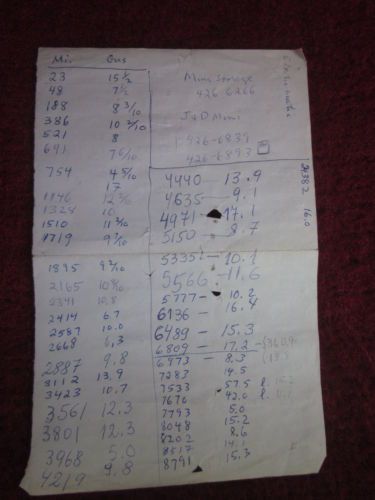 Mi. Gas
23 15 1/2
48 7 1/2
188 8 3/10
386 10 3/10
521 8
691 7 6/10
754 4 5/10
17
1146 12 3/10
1328 10
1510 11 3/10
1719 9 3/10
1895 9 2/10
2165 10 8/10
2341 10.8
2414 6.7
2587 10.0
2668 6.3
2887 9.8
3112 13.9
3423 10.7
3561 12.3
3801 12.3
3968 5.0
4219 9.8
Mini Storage
426 6266
J&D Mini
426-6839
426-6893
4440 - 13.9
4635 - 9.1
4971 - 17.1
5150 - 8.7
5335 - 10.1
5566 - 11.6
5777 - 10.2
6136 - 16.4
6489 - 15.3
6809 - 17.2
6973 - 8.3
7283 14.5
7533 57.5
7670 42.0
7793 5.0
8048 15.2
8202 8.6
8517 14.1
8791 15.3
16.0